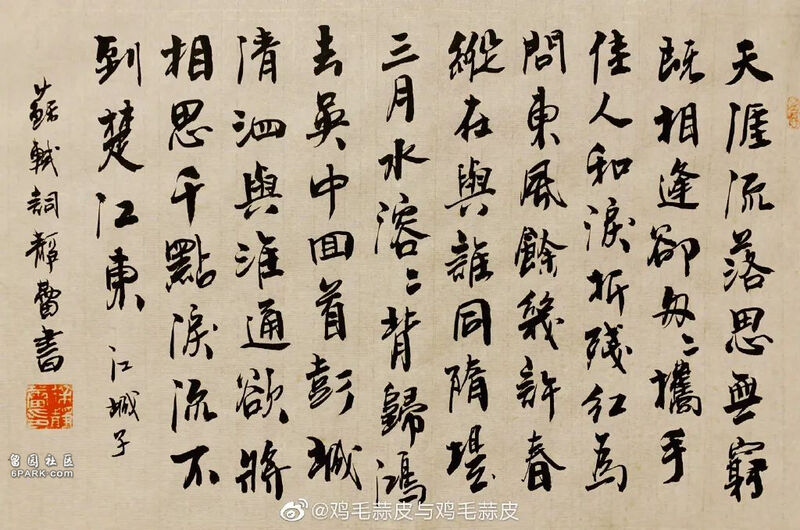 天涯流落思無窮
既相逢卻匆々攜手
佳人和淚折残紅為
問東風餘幾許春
縱在與誰同隋堤
三月水溶々背歸鴻
去吳中回首彭城
清泗與淮通欲將
相思千點淚流不
到楚江東 江城子
蘇軾詞靜蕾書
留园社区
6PARK.COM
@鸡毛蒜皮与鸡毛蒜皮